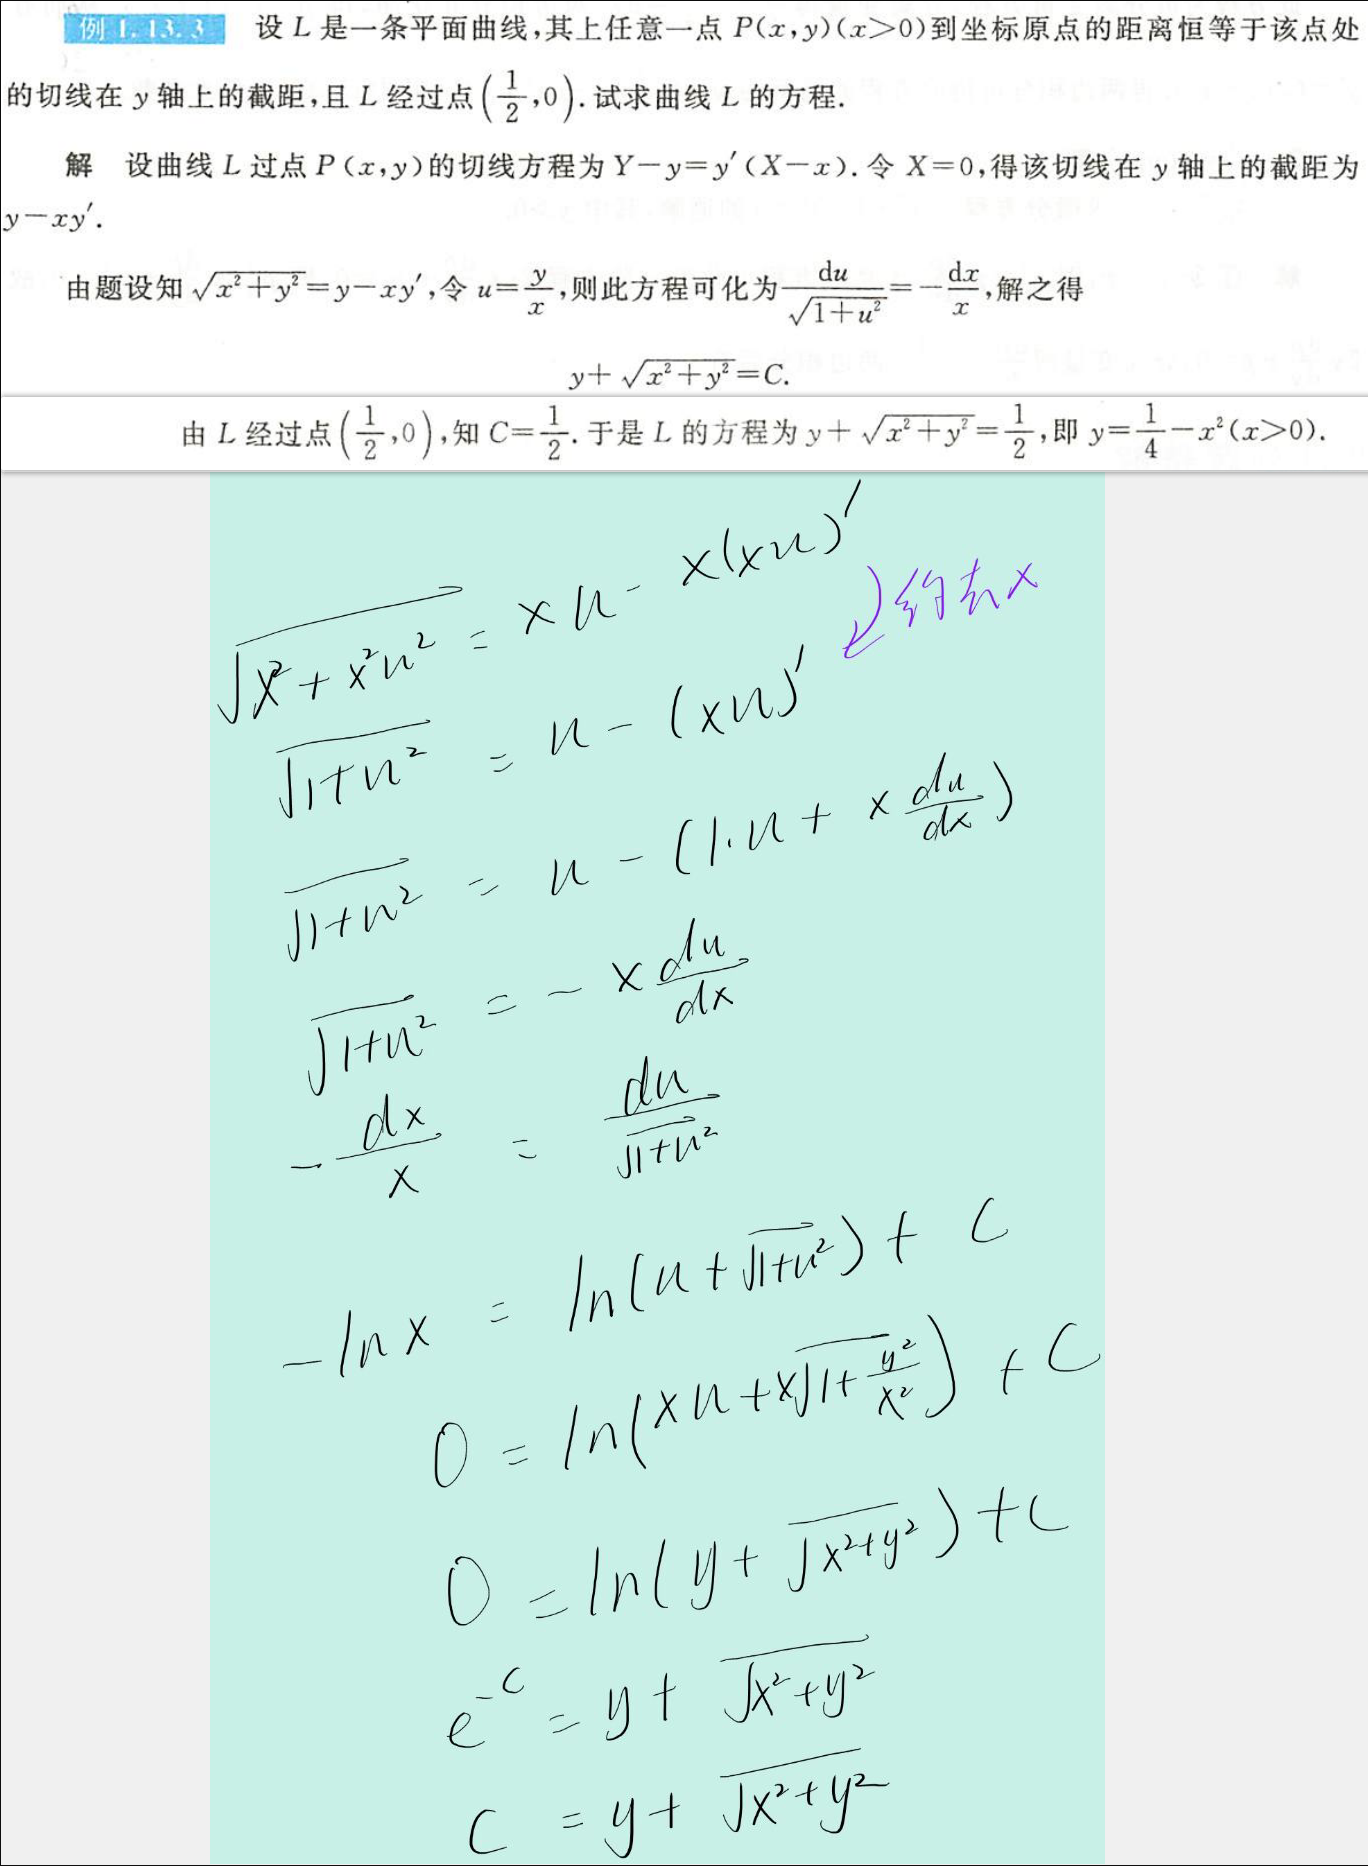 例 1.13.3 设 L 是一条平面曲线,其上任意一点 P(x,y)(x>0)到坐标原点的距离恒等于该点处
的切线在 y 轴上的截距,且 L 经过点(1/2,0).试求曲线 L 的方程.
解 设曲线 L 过点 P(x,y)的切线方程为 Y-y=y′(X-x).令 X=0,得该切线在 y 轴上的截距为
y-xy′.
由题设知√(x²+y²)=y-xy′,令 u=y/x,则此方程可化为 du/√(1+u²)=-dx/x,解之得
y+√(x²+y²)=C.
由 L 经过点(1/2,0),知 C=1/2.于是 L 的方程为 y+√(x²+y²)=1/2,即 y=1/4-x²(x>0).
√(x²+x²u²) = xu - x(xu)′
约去x
√(1+u²) = u - (xu)′
√(1+u²) = u - (1·u + x du/dx)
√(1+u²) = - x du/dx
- dx/x = du/√(1+u²)
-ln x = ln(u+√(1+u²)) + C
0 = ln(xu+x√(1+y²/x²)) + C
0 = ln(y+√(x²+y²)) + C
e^(-C) = y + √(x²+y²)
C = y + √(x²+y²)